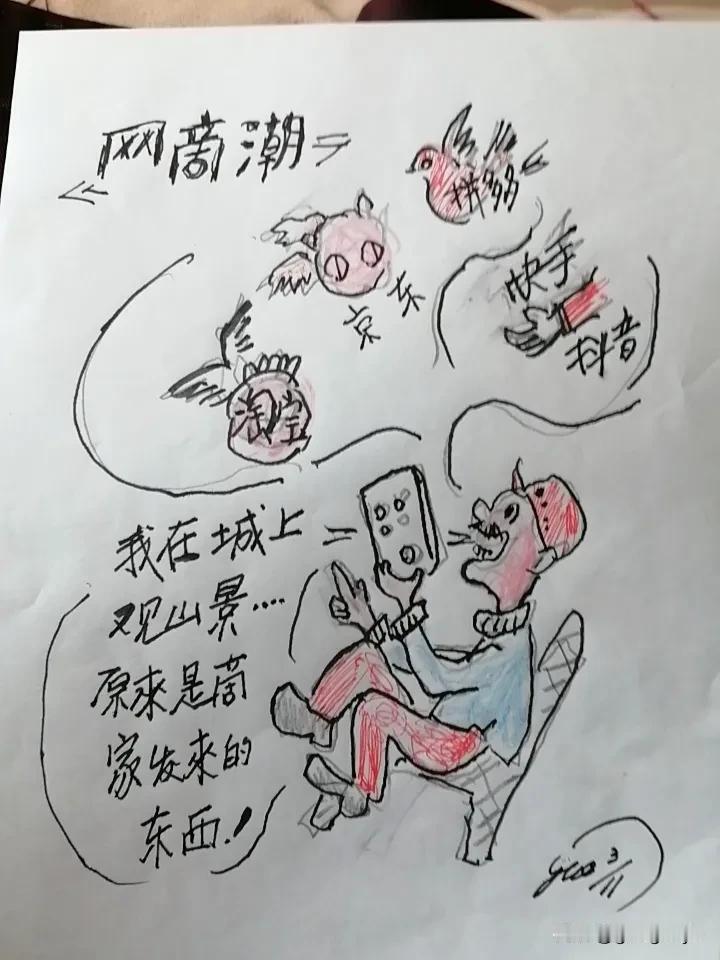 网商潮
拼多多
京东
快手
抖音
淘宝
我在城上
观山景....
原來是商
家发來的
东西.!
3/11